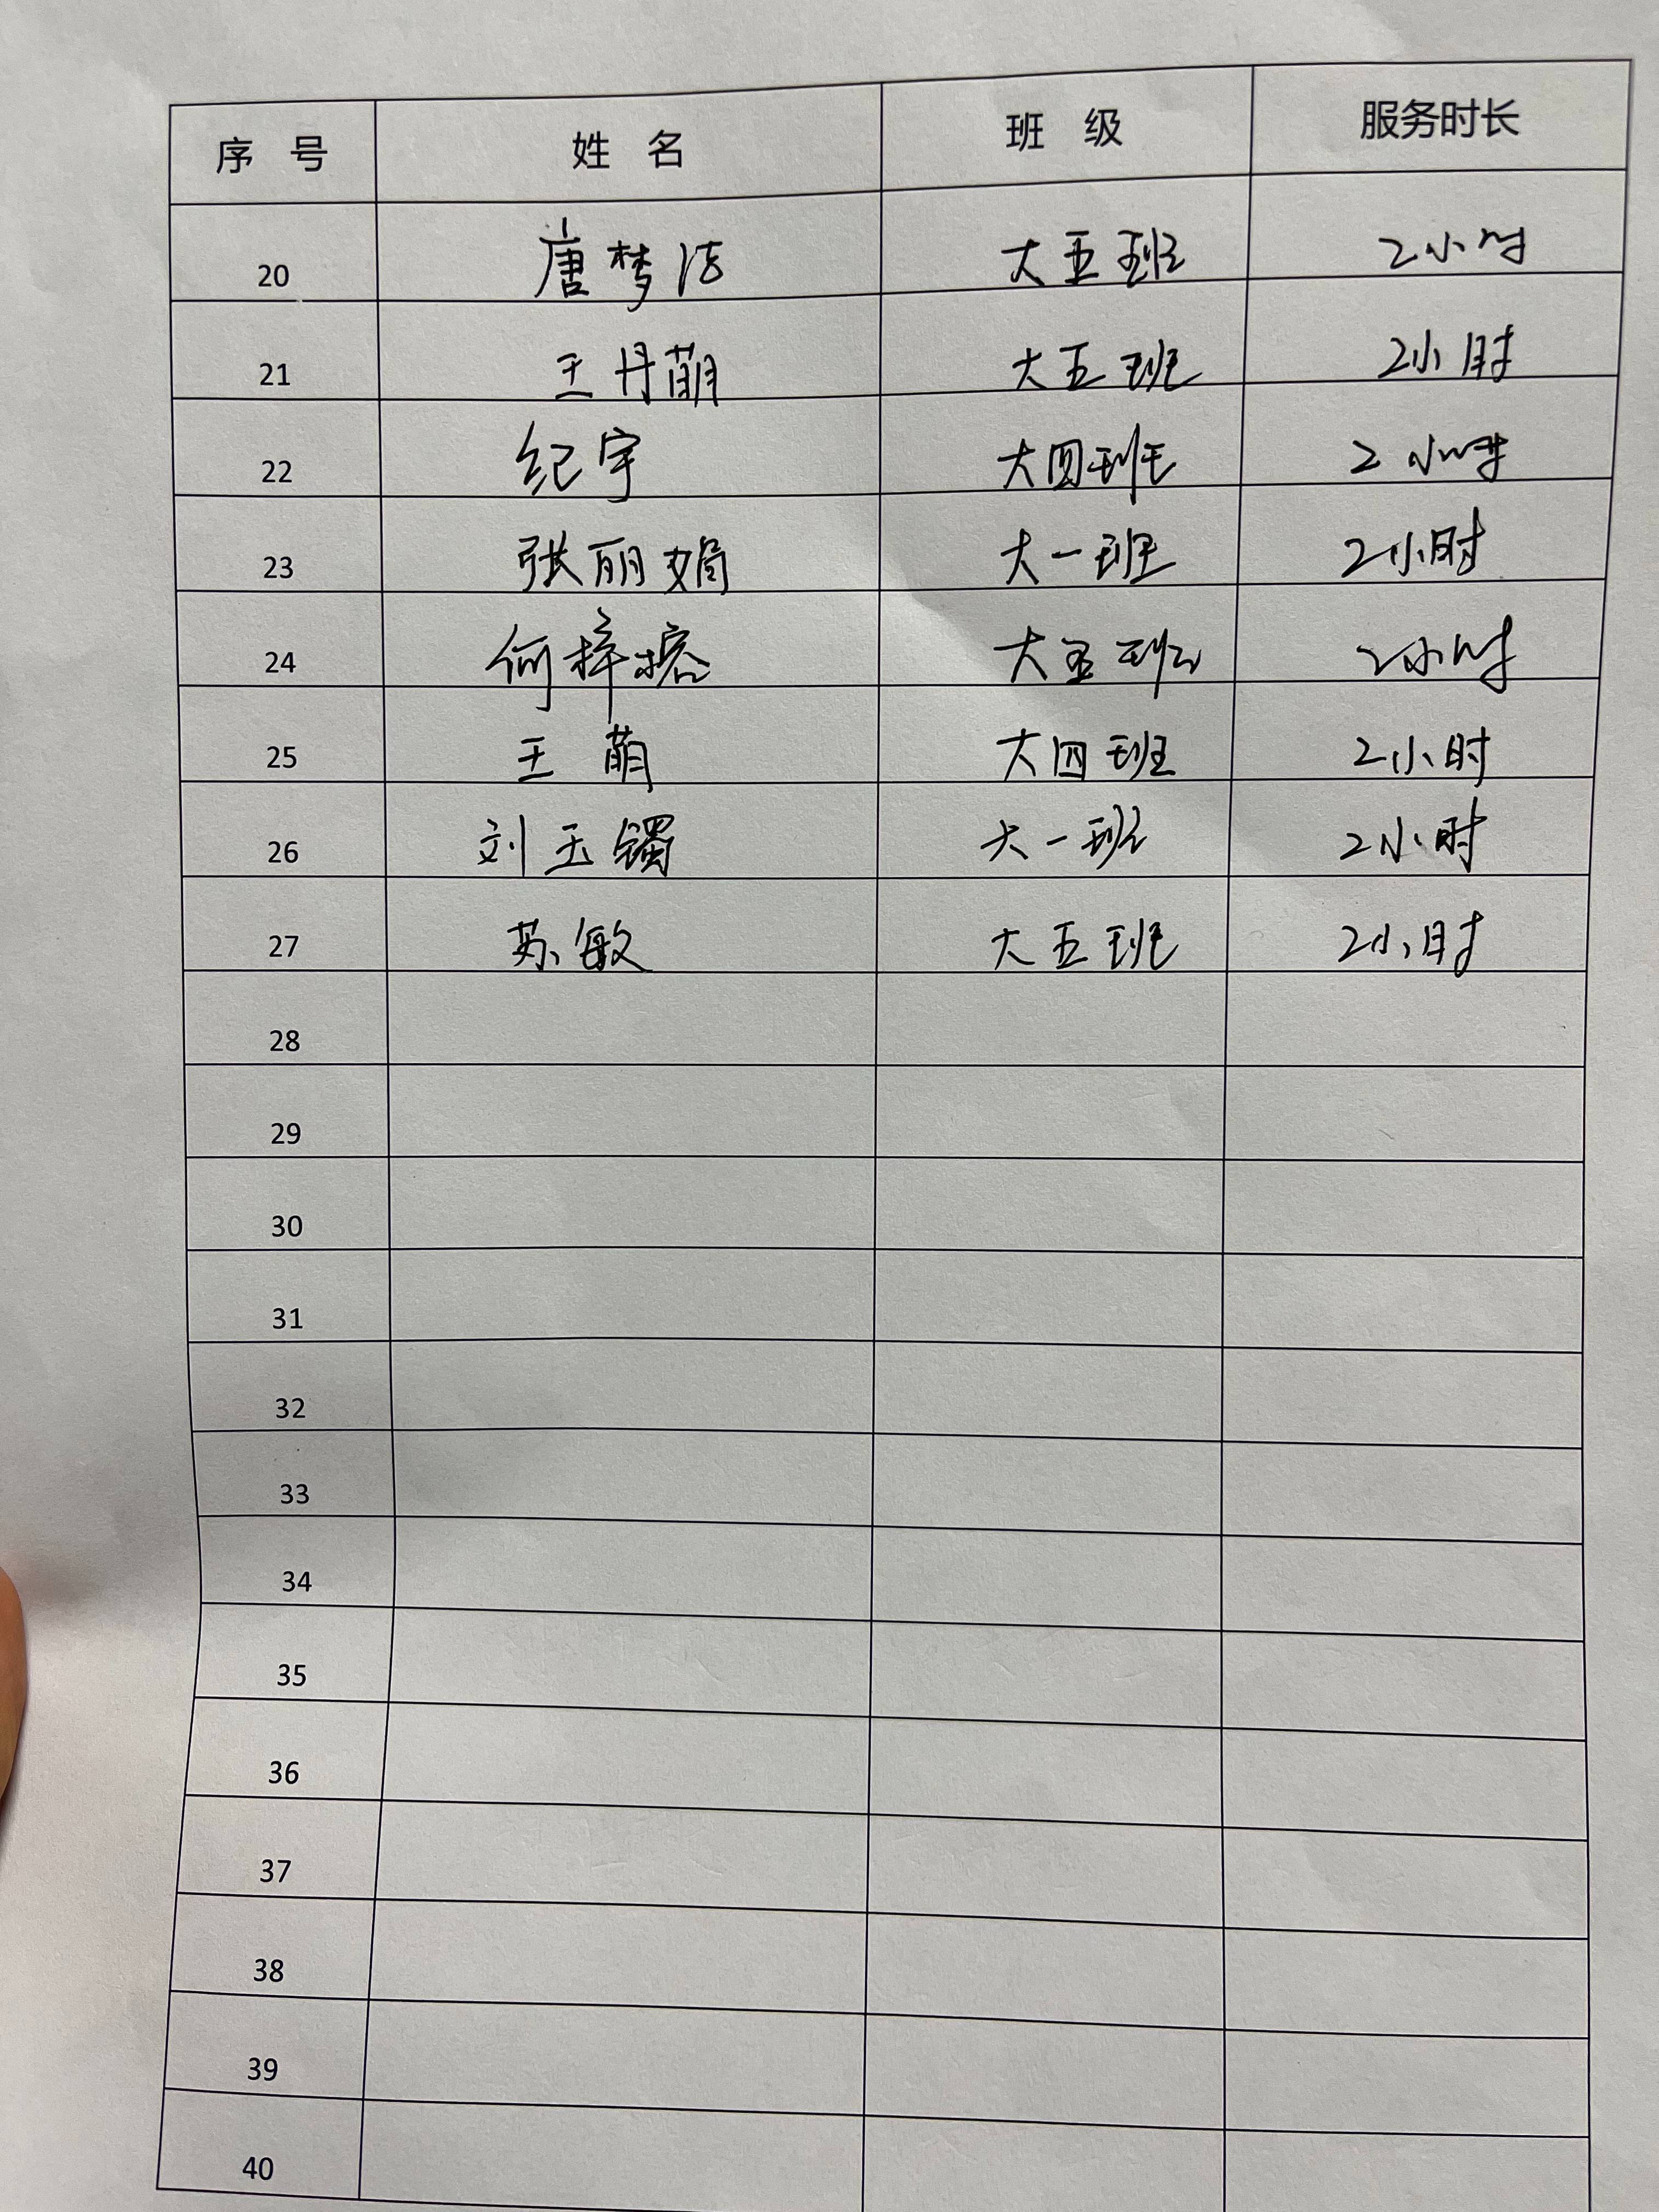 序 号 姓 名 班 级 服务时长
20 唐梦洁 大五班 2小时
21 王丹萌 大五班 2小时
22 纪宇 大四班 2小时
23 张丽娟 大一班 2小时
24 何梓榕 大五班 2小时
25 王 萌 大四班 2小时
26 刘玉镯 大一班 2小时
27 苏敏 大五班 2小时
28
29
30
31
32
33
34
35
36
37
38
39
40